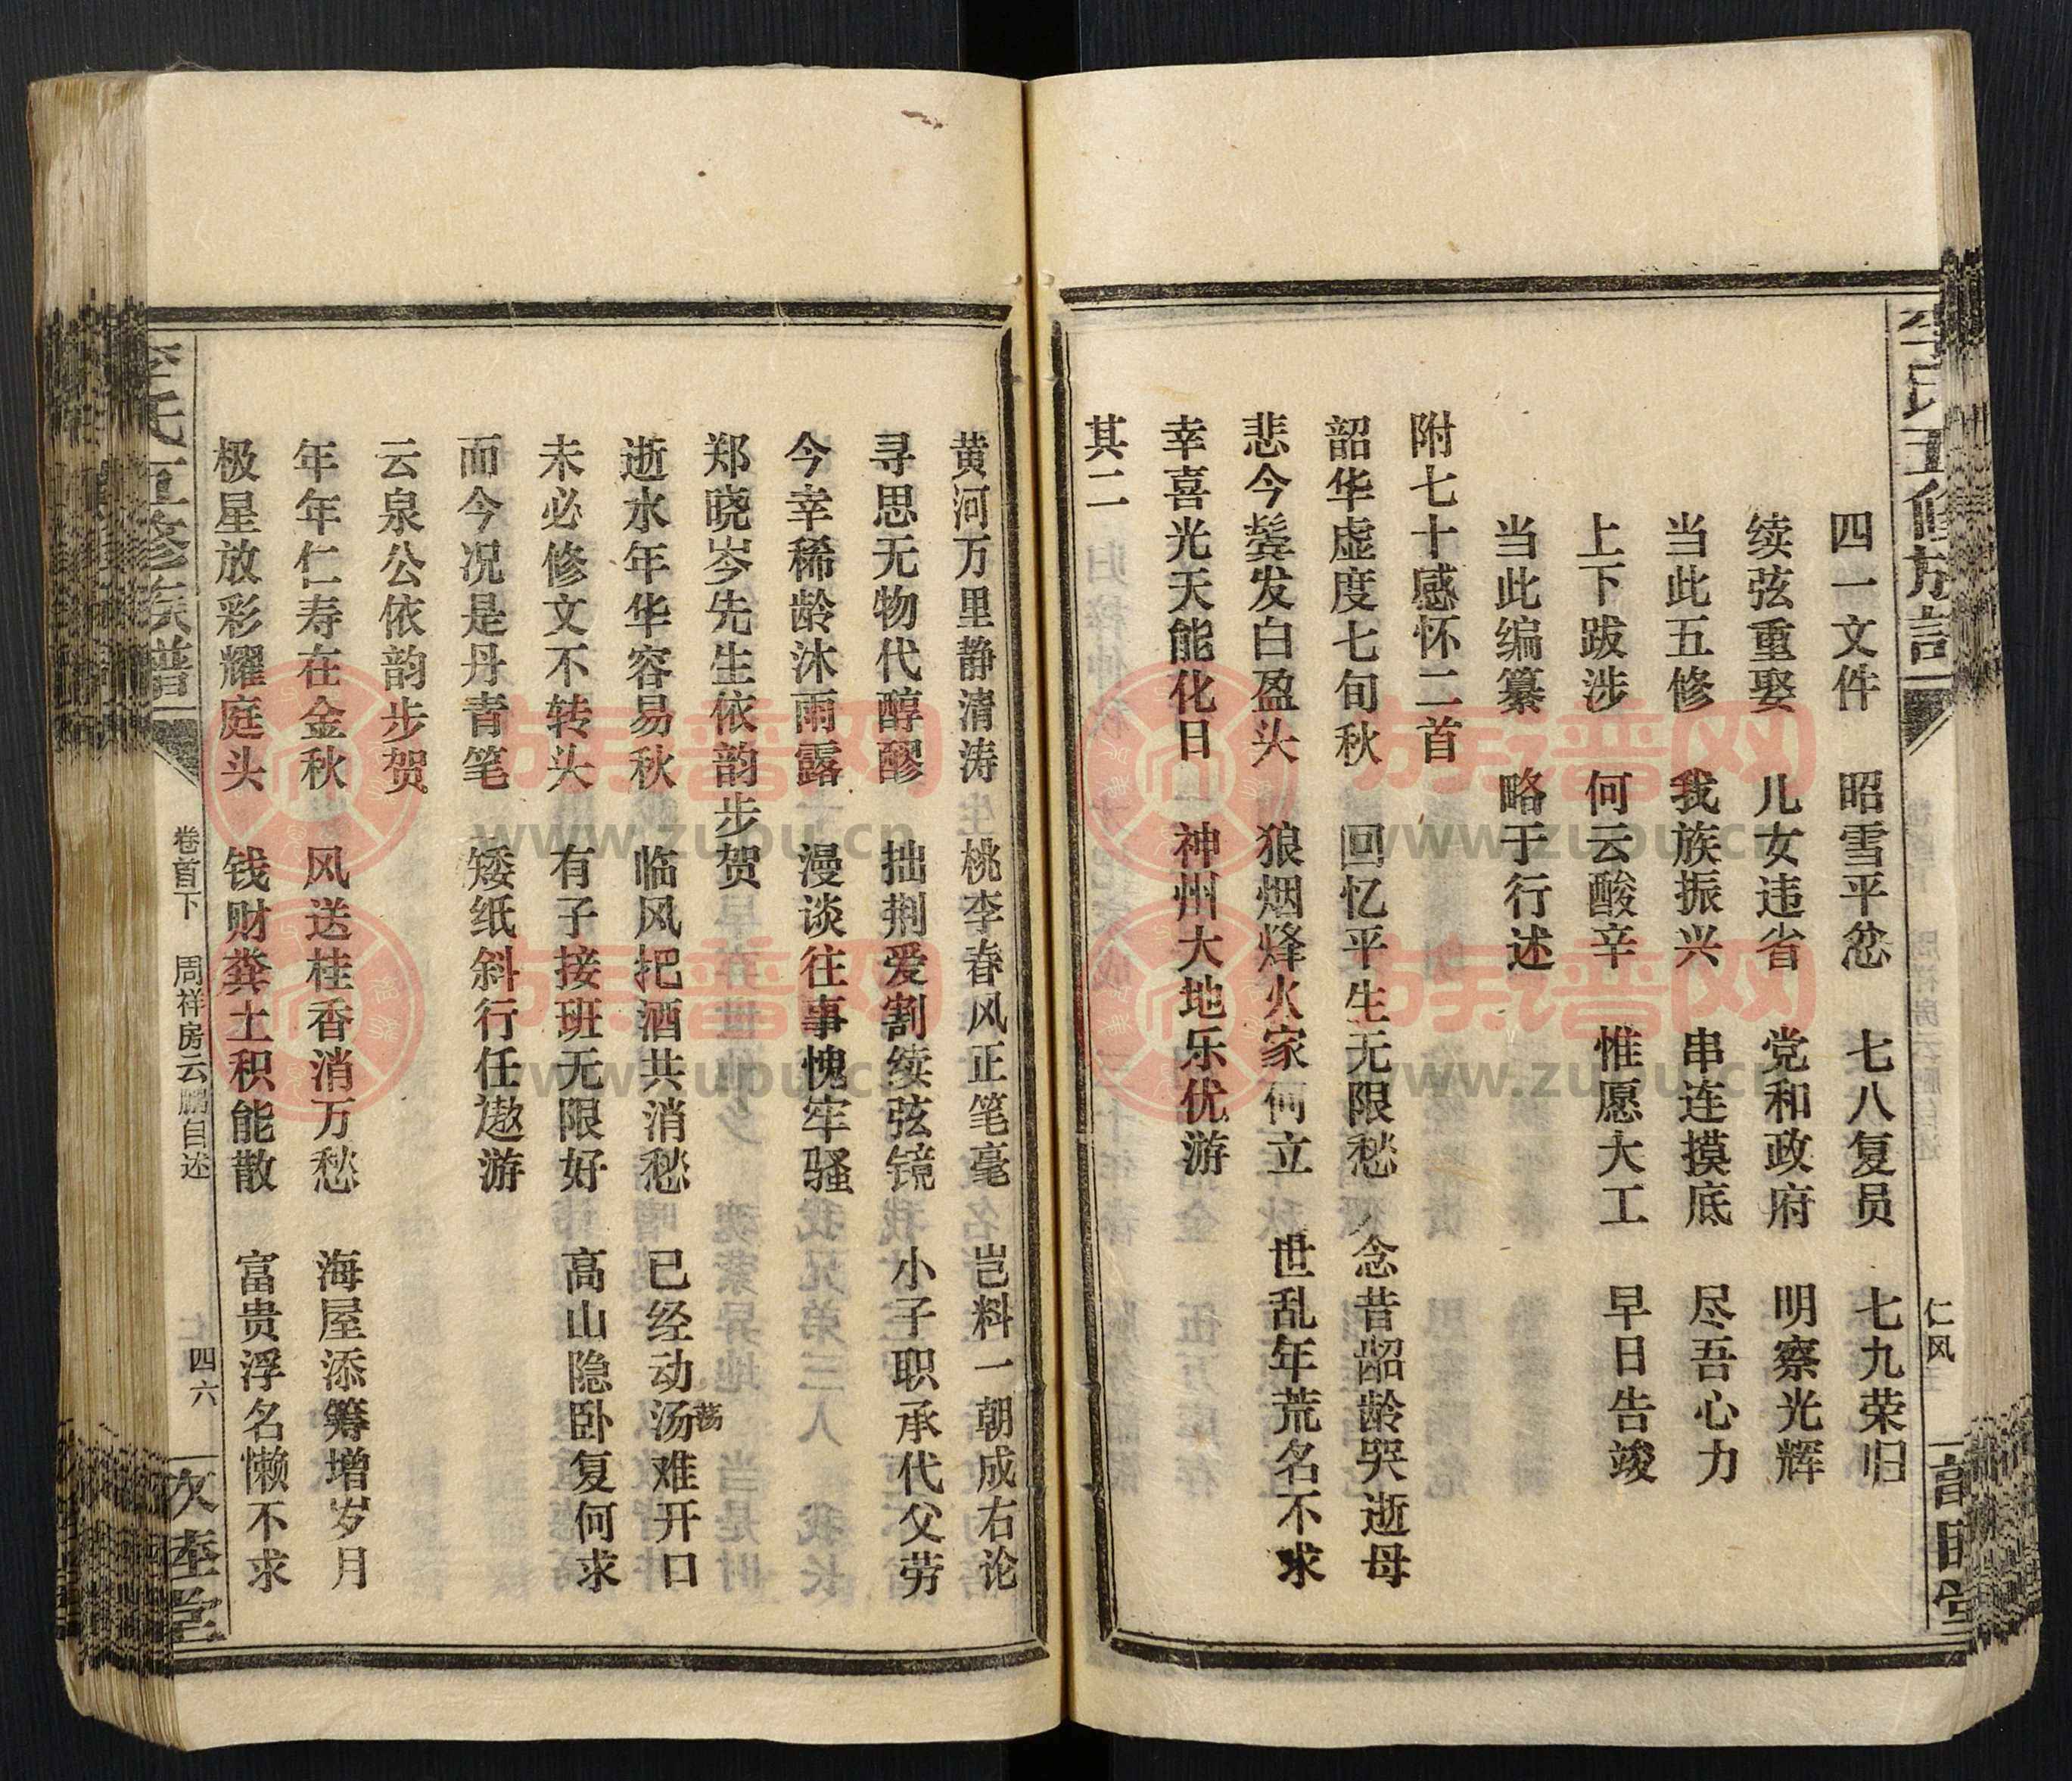 李氏五修族谱
仁风
四一文件 昭雪平忿 七八复员 七九荣归
续弦重娶 儿女违省 党和政府 明察光辉
当此五修 我族振兴 串连摸底 尽吾心力
上下跋涉 何云酸辛 惟愿大工 早日告竣
当此编纂 略于行述
附七十感怀二首
韶华虚度七旬秋 回忆平生无限愁 念昔龆龄哭逝母
悲今鬓发白盈头 狼烟烽火家何立 世乱年荒名不求
幸喜光天能化日 神州大地乐优游
其二
黄河万里静清涛 桃李春风正笔毫 岂料一朝成右论
寻思无物代醇醪 拙荆爱割续弦镜 小子职承代父劳
今幸稀龄沐雨露 漫谈往事愧牢骚
郑晓岑先生依韵步贺
逝水年华容易秋 临风把酒共消愁 已经动汤难开口
荡
未必修文不转头 有子接班无限好 高山隐卧复何求
而今况是丹青笔 矮纸斜行任遨游
云泉公依韵步贺
年年仁寿在金秋 风送桂香消万愁 海屋添筹增岁月
极星放彩耀庭头 钱财粪土积能散 富贵浮名懒不求
李氏五修族谱
卷首下 周祥房云鹏自述
四六
族谱网
www.zupu.cn
族谱网
www.zupu.cn
族谱网
www.zupu.cn
族谱网
www.zupu.cn